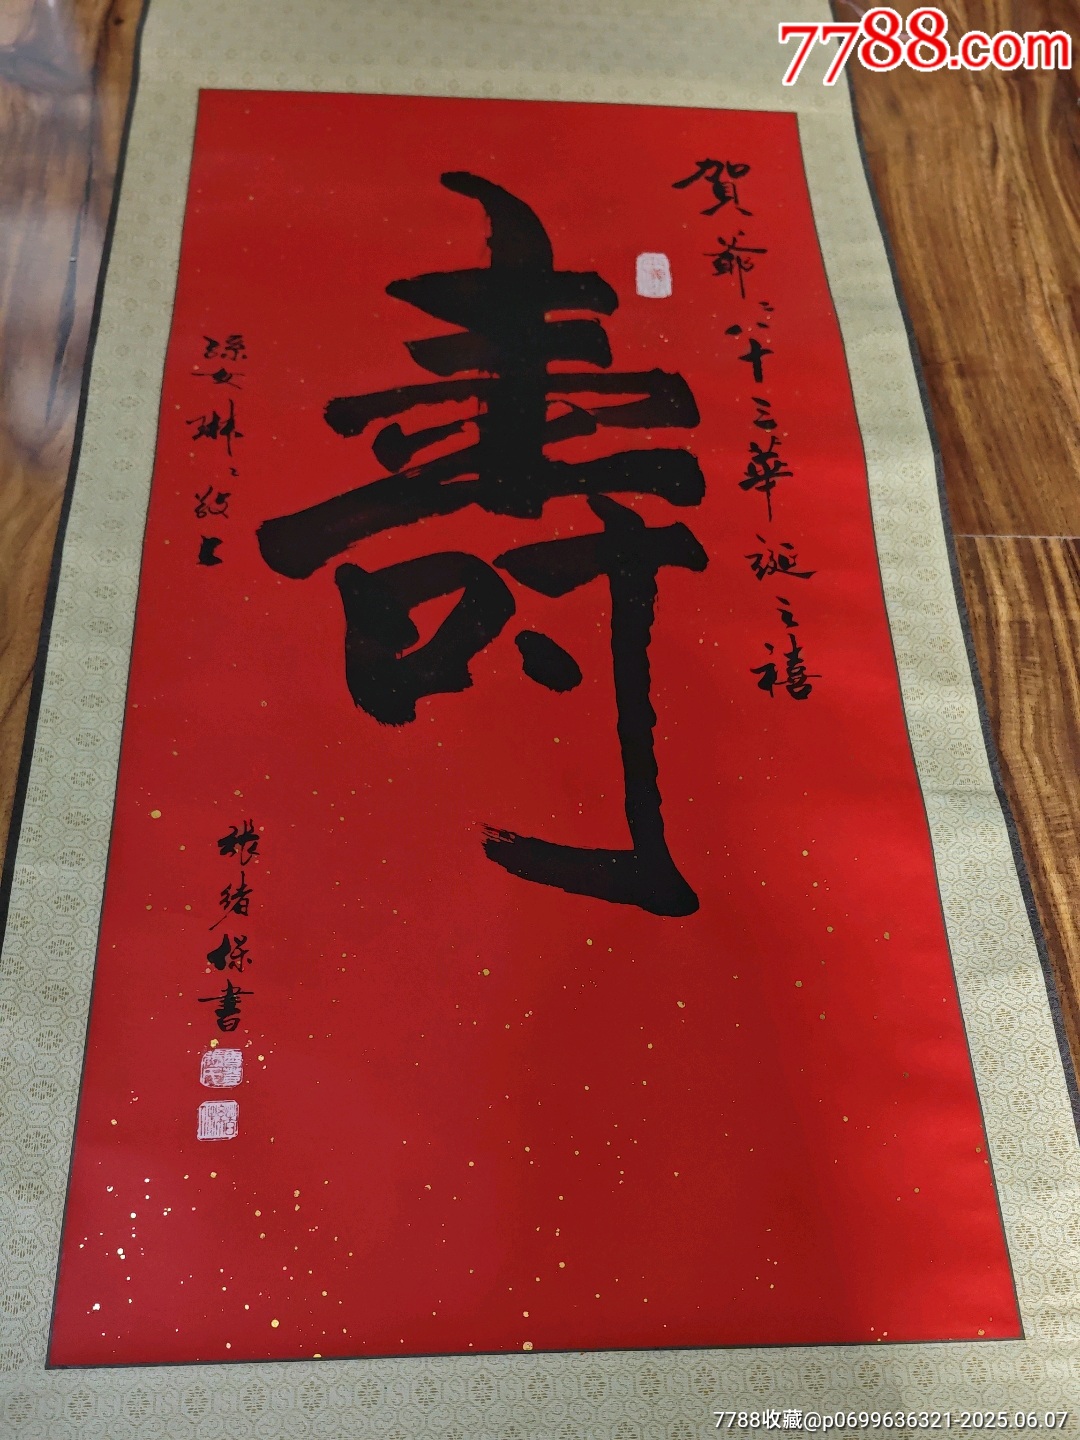 7788.com
賀爺〻八十三華誕之禧
壽
孫女琳〻敬上
張緒保書
7788收藏@p0699636321-2025.06.07